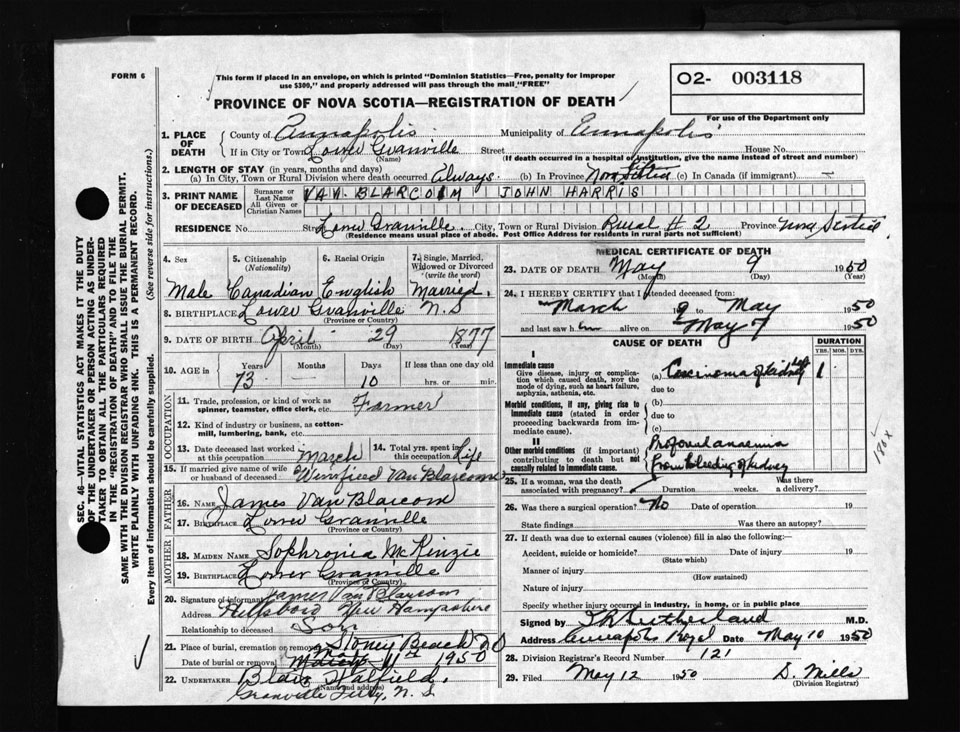 FORM 6
This form if placed in an envelope, on which is printed "Dominion Statistics—Free, penalty for improper
use $300," and properly addressed will pass through the mail "FREE"
O2- 003118
For use of the Department only
PROVINCE OF NOVA SCOTIA—REGISTRATION OF DEATH
1. PLACE OF DEATH County of Annapolis Municipality of Annapolis
If in City or Town Lower Granville Street House No.
(Name) (If death occurred in a hospital or institution, give the name instead of street and number)
2. LENGTH OF STAY (in years, months and days)
(a) In City, Town or Rural Division where death occurred Always (b) In Province Nova Scotia Life (c) In Canada (if immigrant) —
3. PRINT NAME OF DECEASED Surname or Last Name VAN BLARCOM JOHN HARRIS
All Given or Christian Names
RESIDENCE No. St. Lower Granville City, Town or Rural Division Rural # 2 Province Nova Scotia
(Residence means usual place of abode. Post Office Address for residents in rural parts not sufficient)
4. Sex 5. Citizenship (Nationality) 6. Racial Origin 7. Single, Married, Widowed or Divorced (write the word)
Male Canadian English Married
8. BIRTHPLACE Lower Granville N.S
(Province or Country)
9. DATE OF BIRTH April 29 1877
(Month) (Day) (Year)
10. AGE in Years Months Days If less than one day old
73 — 10 hrs. or min.
OCCUPATION
11. Trade, profession, or kind of work as spinner, teamster, office clerk, etc. Farmer
12. Kind of industry or business, as cotton-mill, lumbering, bank, etc.
13. Date deceased last worked at this occupation March 14. Total yrs. spent in this occupation Life
15. If married give name of wife or husband of deceased Winifred Van Blarcom
FATHER
16. Name James Van Blarcom
17. Birthplace Lower Granville
(Province or Country)
MOTHER
18. Maiden Name Sophronia McKinzie
19. Birthplace Lower Granville
(Province or Country)
20. Signature of informant James Van Blarcom
Address Hillsboro New Hampshire
Relationship to deceased Son
21. Place of burial, cremation or removal Stoney Beach
Date of burial or removal May 11th 1950
22. UNDERTAKER Blair Halfield.
(Name and address)
Granville Ferry, N.S
MEDICAL CERTIFICATE OF DEATH
23. DATE OF DEATH May 9 1950
(Month) (Day) (Year)
24. I HEREBY CERTIFY that I attended deceased from:
March to May 1950
and last saw him alive on May 9 1950
CAUSE OF DEATH DURATION
YRS. MOS. DYS.
I
Immediate cause
Give disease, injury or complication which caused death, NOT the mode of dying, such as heart failure, asphyxia, asthenia, etc.
(a) Carcinoma of kidney left 1
due to
Morbid conditions, if any, giving rise to immediate cause (stated in order proceeding backwards from immediate cause).
(b)
due to
(c)
II
Other morbid conditions (if important) contributing to death but not causally related to immediate cause.
Profound anaemia
from bleeding of kidney
180x
25. If a woman, was the death associated with pregnancy? Duration weeks. Was there a delivery?
26. Was there a surgical operation? No Date of operation 19
State findings Was there an autopsy?
27. If death was due to external causes (violence) fill in also the following:—
Accident, suicide or homicide? Date of injury 19
(State which)
Manner of injury
(How sustained)
Nature of injury
Specify whether injury occurred in industry, in home, or in public place
Signed by Sutherland M.D.
Address Annapolis Royal Date May 10 1950
28. Division Registrar's Record Number 121
29. Filed May 12 1950 S. Mills
(Division Registrar)
SEC. 46—VITAL STATISTICS ACT MAKES IT THE DUTY
OF THE UNDERTAKER OR PERSON ACTING AS UNDER-
TAKER TO OBTAIN ALL THE PARTICULARS REQUIRED
IN THE "REGISTRATION OF DEATH" AND TO FILE THE
SAME WITH THE DIVISION REGISTRAR WHO SHALL ISSUE THE BURIAL PERMIT.
WRITE PLAINLY WITH UNFADING INK. THIS IS A PERMANENT RECORD.
Every item of Information should be carefully supplied. (See reverse side for instructions.)